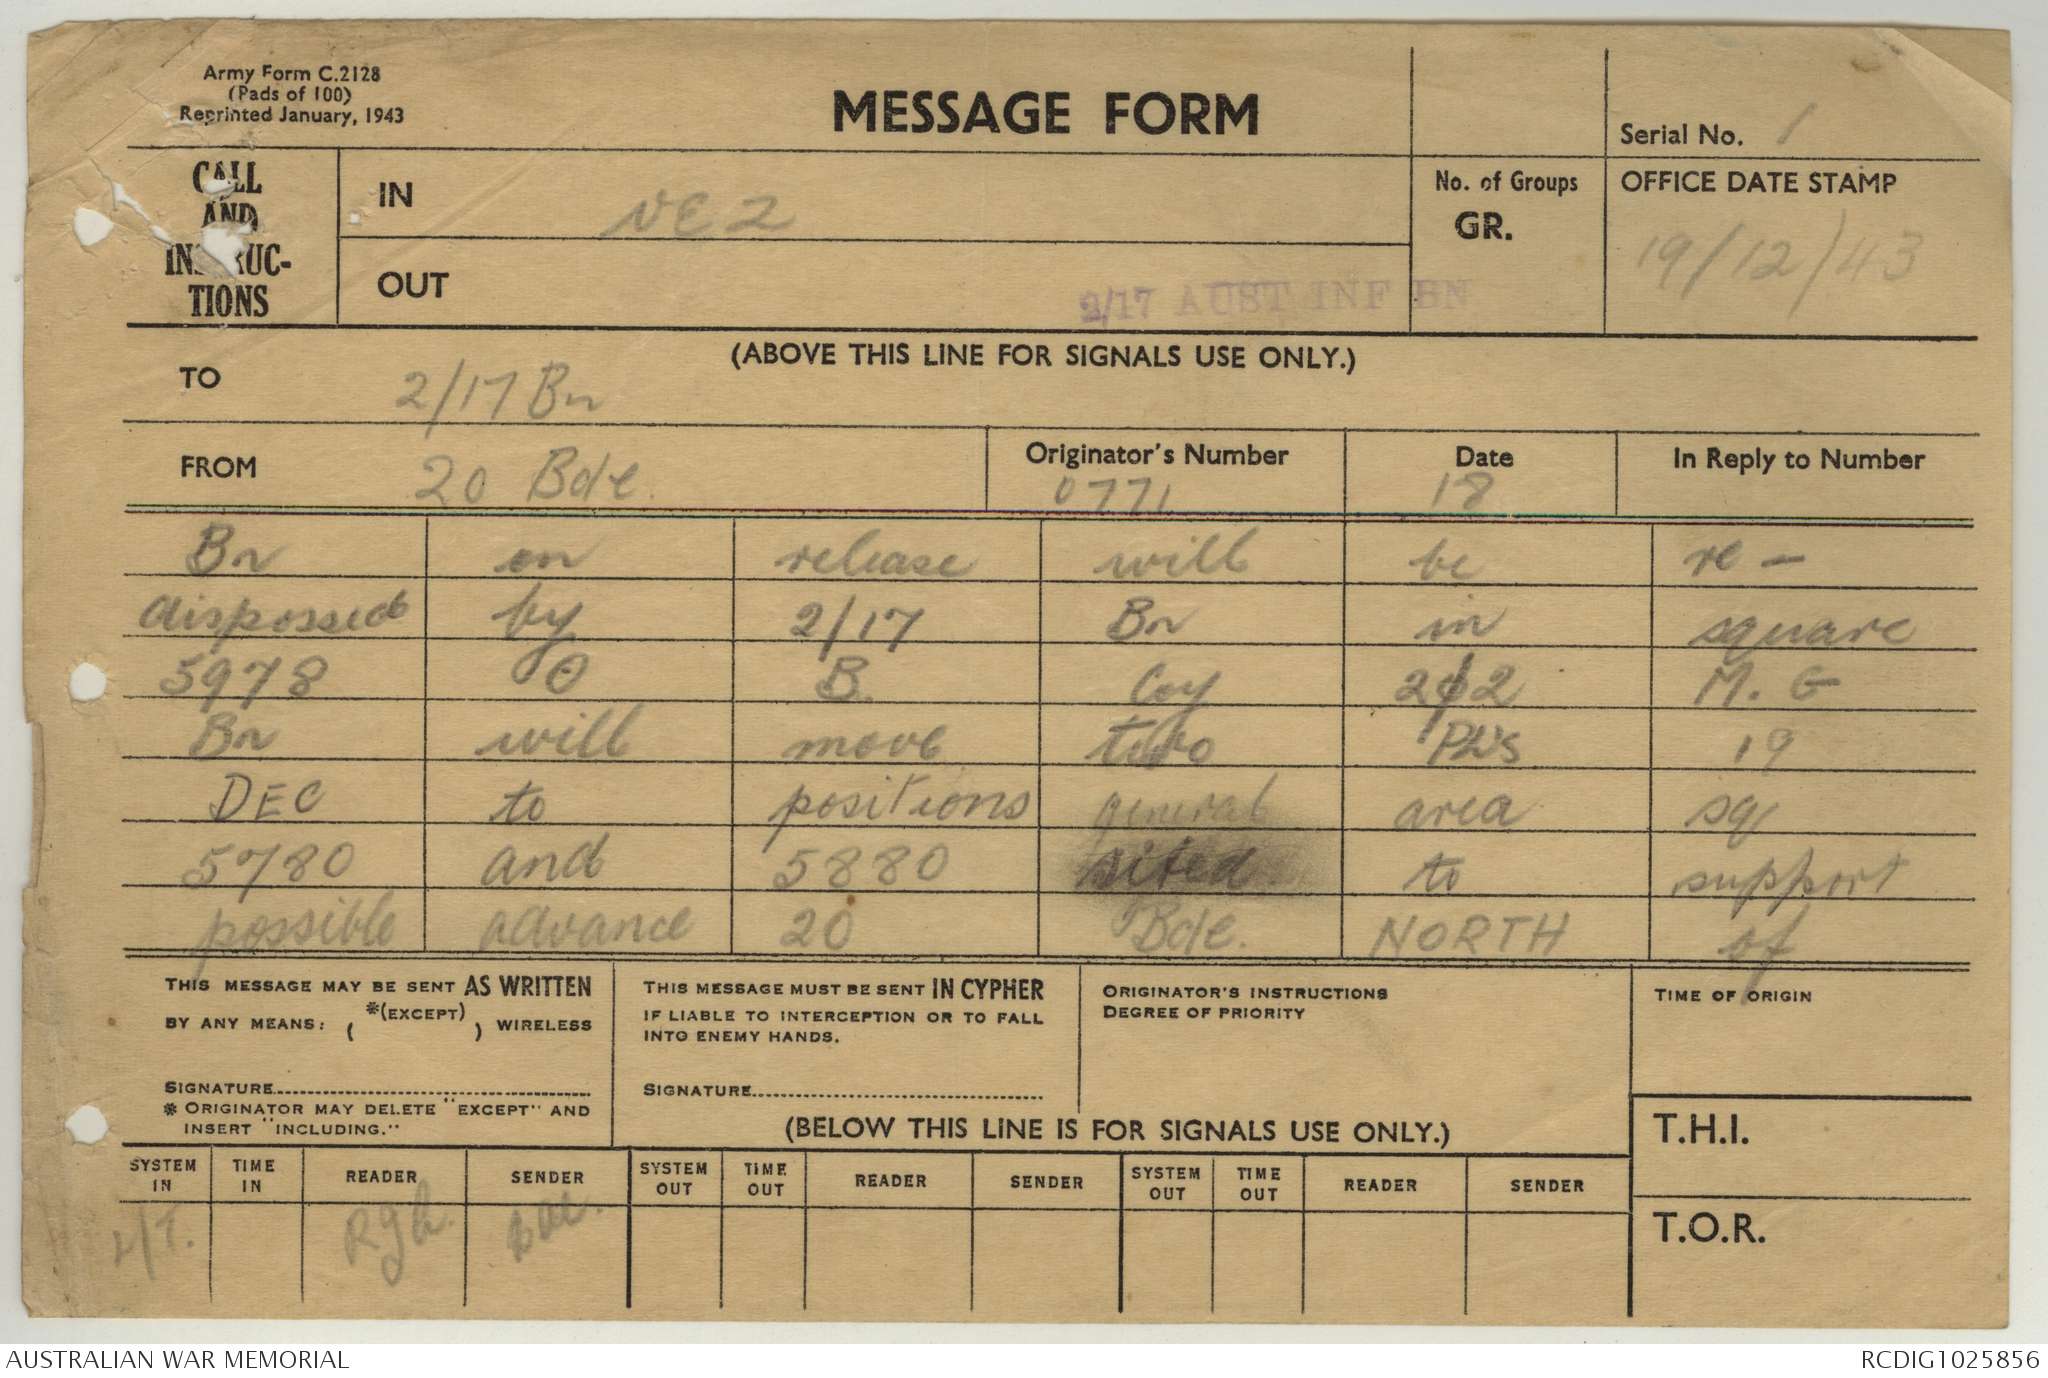 Army Form C.2128
(Pads of 100)
Reprinted January, 1943
MESSAGE FORM
Serial No. 1
CALL AND INSTRUC-TIONS
IN VE2
No. of Groups GR.
OFFICE DATE STAMP
19/12/43
OUT
2/17 AUST INF BN
(ABOVE THIS LINE FOR SIGNALS USE ONLY.)
TO 2/17 Bn
FROM 20 Bde.
Originator's Number 0771
Date 18
In Reply to Number
Bn on release will be re-
dispossed by 2/17 Bn in square
5978 B. Coy 2/2 M. G
Bn will move two PL's 19
DEC to positions general area sq
5780 and 5880 sited to support
possible advance 20 Bde. NORTH of
THIS MESSAGE MAY BE SENT AS WRITTEN
BY ANY MEANS: ( *(EXCEPT) ) WIRELESS
SIGNATURE
* ORIGINATOR MAY DELETE "EXCEPT" AND
INSERT "INCLUDING."
THIS MESSAGE MUST BE SENT IN CYPHER
IF LIABLE TO INTERCEPTION OR TO FALL
INTO ENEMY HANDS.
SIGNATURE
ORIGINATOR'S INSTRUCTIONS
DEGREE OF PRIORITY
TIME OF ORIGIN
(BELOW THIS LINE IS FOR SIGNALS USE ONLY.)
T.H.I.
SYSTEM IN TIME IN READER SENDER SYSTEM OUT TIME OUT READER SENDER SYSTEM OUT TIME OUT READER SENDER
T.O.R.
AUSTRALIAN WAR MEMORIAL
RCDIG1025856